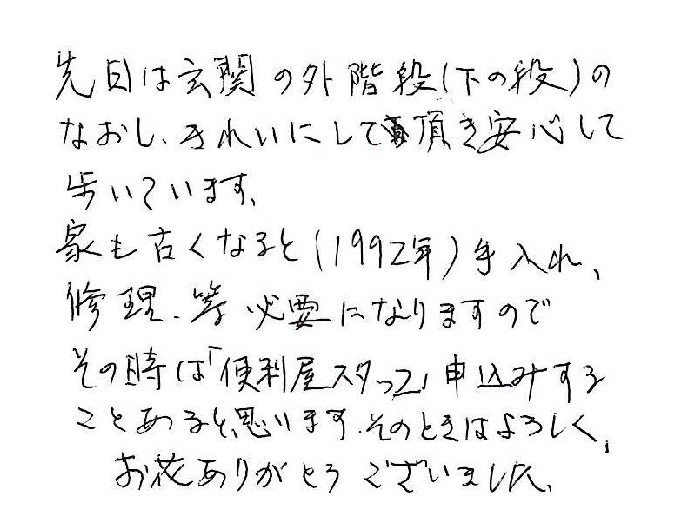 先日は玄関の外階段(下の段)の
なおし、きれいにして頂き安心して
歩いています、
家も古くなると(1992年)手入れ、
修理、等必要になりますので
その時は「便利屋スタっフ」申込みする
ことあると思います、そのときはよろしく、
お花ありがとうございました、